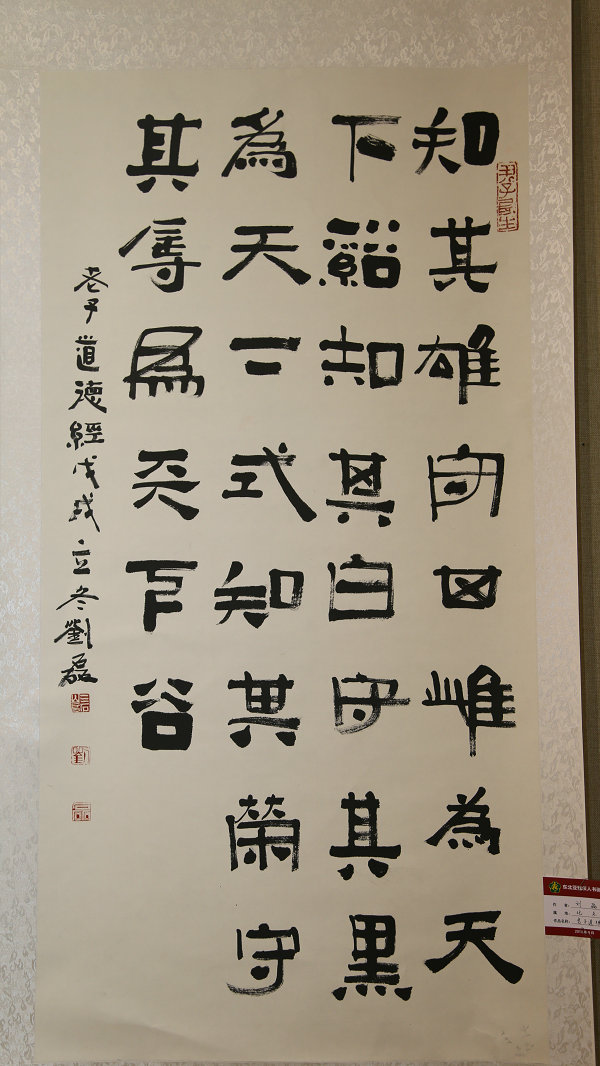 知其雄守其雌為天
下谿知其白守其黑
為天下式知其榮守
其辱為天下谷
老子道德經戊戌立冬劉磊
刘磊